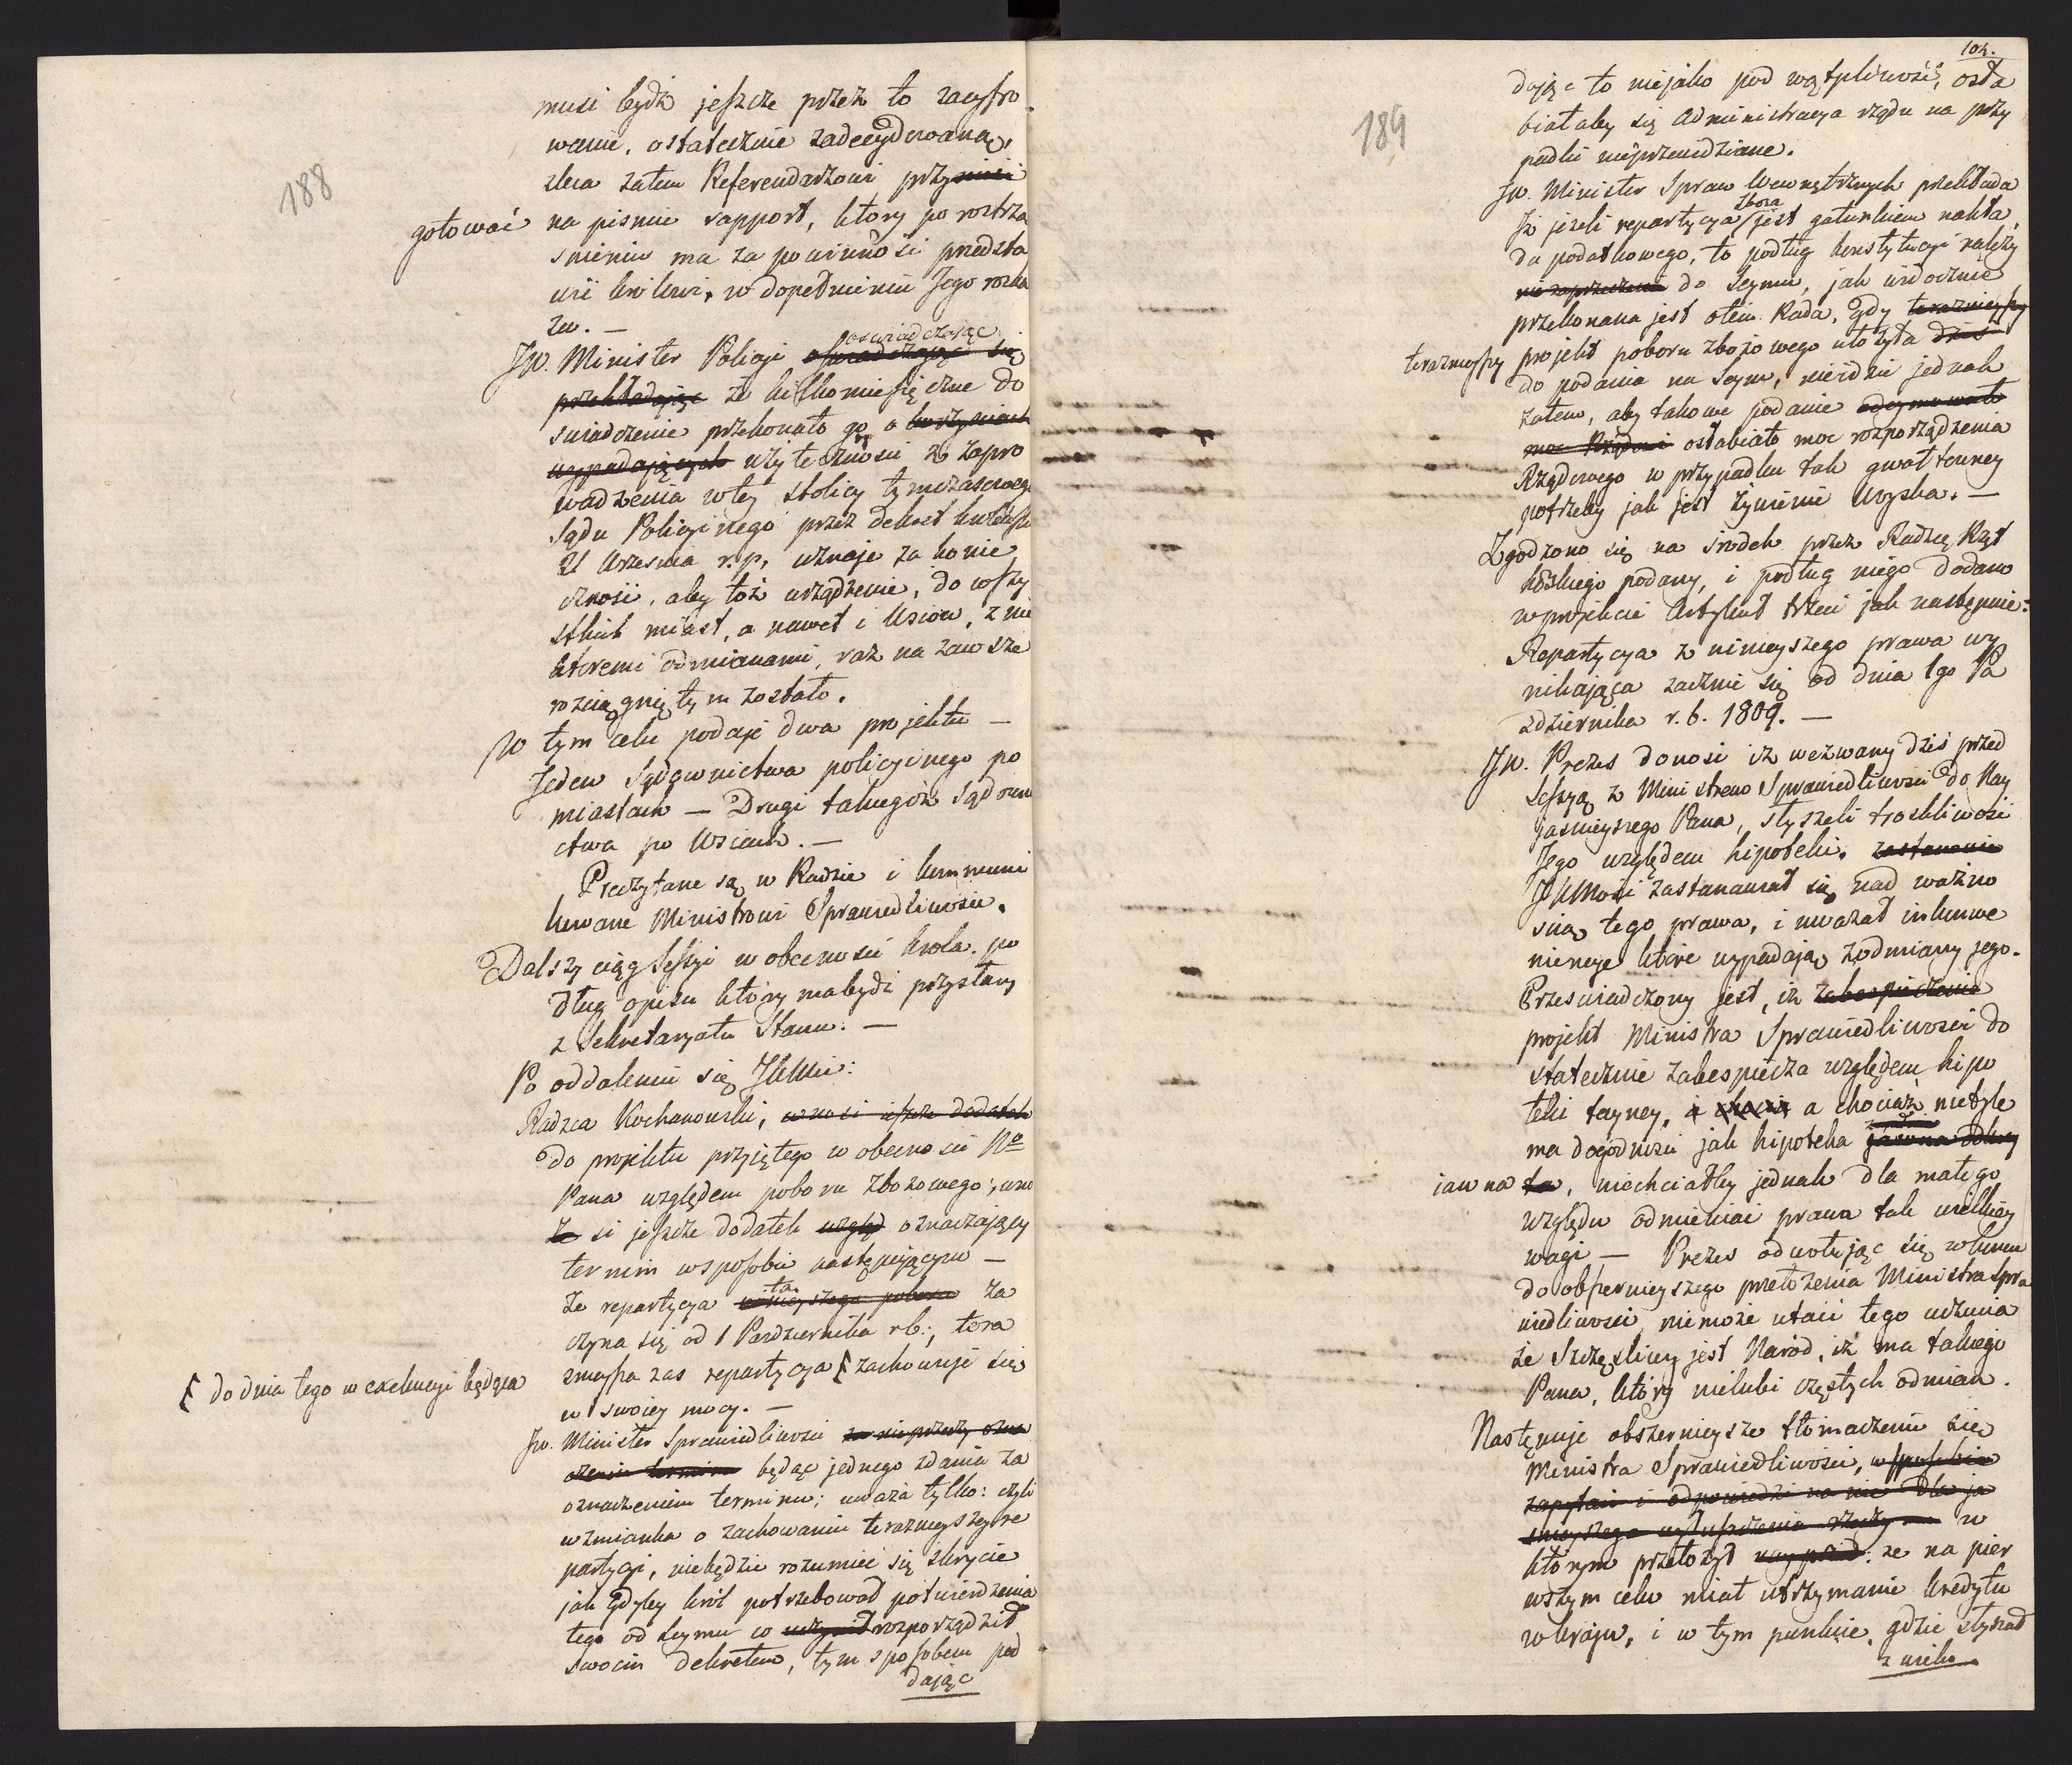 188
musi bydź jeszcze przez to zacyfro
wanie, ostatecznie zadecydowaną,
zleca zatem Referendarzowi przyniesć
gotować na pismie rapport, ktory po roztrzą
snieniu ma za powinność przedsta
wić królowi, w dopełnieniu Jego rozka
zu. —
oswiadczając
JW. Minister Policyi oswiadczając się
przekładając że kilkomiesięczne do
swiadczenie przekonało go o korzysciach
wypadających użyteczności z zapro
wadzenia w tey stolicy tymczasowego
Sądu Policyinego przez dekret królewski
21 Wrzesnia r. p. uznaje za konie
czność, aby toż urządzenie, do wszy
stkich miast, a nawet i Wsiów, z nie
ktoremi odmianami, raz na zawsze
rozciągniętym zostało.
W tym celu podaje dwa projekta —
Jeden Sądownictwa policyinego po
miastach — Drugi takiegoż Sądowni
ctwa po Wsiach. —
Przeczytane są w Radzie i kommuni
kowane Ministrowi Sprawiedliwości.
Dalszy ciąg Sessyi w obecności Krola, po
dług opisu który ma bydź przysłany
z Sekretaryatu Stanu: —
Po oddaleniu się JKMci:
Radzca Kochanowski, wnosi jeszcze dodatek
do projektu przyiętego w obecności No
Pana względem poboru zbożowego; wno
że si jeszcze dodatek względ oznaczający
termin w sposobie następującym —
ta
że repartycya ninieyszego poboru za
czyna się od 1 Pazdziernika r b:, tera
znieysza zas repartycya zachowuje się
do dnia tego w exekucyi będąca
w swoiey mocy. —
JW. Minister Sprawiedliwości za nieprzeczy ozna
czenia termin będąc jednego zdania za
oznaczeniem terminu; uważa tylko: czyli
wzmianka o zachowaniu teraznieyszey re
partycyi, niebędzie rozumieć się skrycie
jak gdyby król potrzebował potwierdzenia
tego od Seymu co uczynił rozporządził
swoim Dekretem, tym sposobem pod
dając
104.
189
dając to niejako pod wątpliwość, osła
białaby się Administracya rządu na przy
padki nieprzewidziane.
JW. Minister Spraw Wewnętrznych przekłada
zboża
Iż jeżeli repartycya jest gatunkiem nakła
du podatkowego, to podług konstytucyi należy
niezaprzeczenie do Seymu, jak widocznie
przekonana jest o tem Rada, gdy teraznieyszy
teraznieyszy projekt poboru zbożowego ułożyła dziś
do podania na Seym, nieidzie jednak
zatem, aby takowe podanie odeymowało
moc Rządowi osłabiało moc rozporządzenia
Rządowego w przypadku tak gwałtowney
potrzeby jak jest żywienie Woyska. —
Zgodzono się na srodek przez Radzcę Rząt
kowskiego podany, i podług niego dodano
w projekcie Artykuł trzeci jak następnie:
Repartycya z ninieyszego prawa wy
nikająca zacznie się od dnia 1go Pa
zdziernika r. b. 1809. —
JW. Prezes donosi iż wezwany dziś przed
Sessyą z Ministrem Sprawiedliwości do Nay
jasnieyszego Pana, słyszeli troskliwość
Jego względem hipoteki. zastanowie
JKMość zastanawiał się nad ważno
scią tego prawa, i uważał inkonwe
niencye które wypadają z odmiany jego.
Przeswiadczony jest, iż zabespieczenie
projekt Ministra Sprawiedliwości do
statecznie zabespiecza względem hipo
teki tayney, i chociaż a chociaż nietyle
ma dogodności jak hipoteka jawna
iawna ta, niechciałby jednak dla małego
względu odmieniać prawa tak wielkiey
wagi — Prezes odwołując się w tem
do obszernieyszego przełożenia Ministra Spra
wiedliwości, niemoże utaić tego uczucia
że Szczęsliwy jest Naród, iż ma takiego
Pana, który nielubi częstych odmian.
Następuje obszernieysze tłómaczenie się
Ministra Sprawiedliwości, w sposobie
zapytań i odpowiedzi na nie dla ja
snieyszego wytłuszczenia rzeczy w
którym przełożył nayprzód: że na pier
wszym celu miał utrzymanie kredytu
w kraju, i w tym punkcie, gdzie słyszał
z wielu